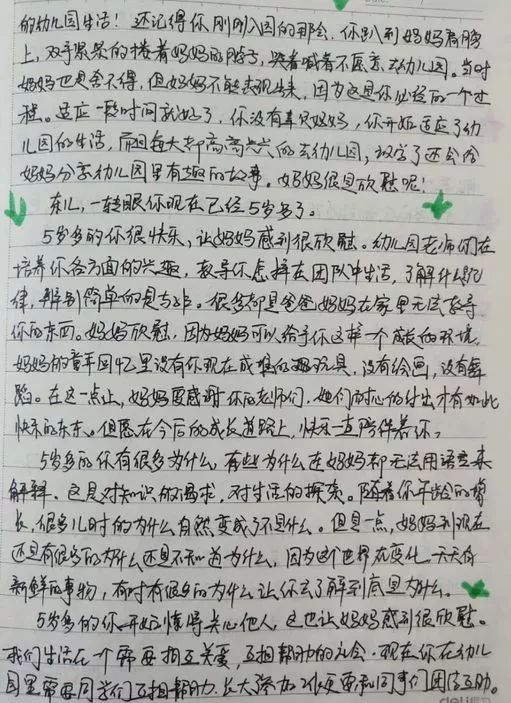 的幼儿园生活！还记得你刚刚入园的那会，你趴到妈妈肩膀
上，双手紧紧的搂着妈妈的脖子，哭着喊着不愿意去幼儿园。当时
妈妈也是舍不得，但妈妈不能表现出来，因为这是你必经的一个过
程。适应一段时间就好了，你没有辜负妈妈，你开始适应了幼
儿园的生活，而且每天都高高兴兴的去幼儿园，放学了还会给
妈妈分享幼儿园里有趣的故事。妈妈很是欣慰呢！
东儿，一转眼你现在已经5岁多了。
5岁多的你很快乐，让妈妈感到很欣慰。幼儿园老师们在
培养你各方面的兴趣，教导你怎样在团队中生活，了解什么纪
律，辨别简单的是与非。很多都是爸爸妈妈在家里无法教导
你的东西。妈妈欣慰，因为妈妈可以给予你这样一个成长的环境，
妈妈的童年回忆里没有你现在成堆的玩具，没有绘画，没有舞
蹈。在这一点上，妈妈要感谢你的老师们，她们耐心的付出才有如此
快乐的东东。但愿在今后的成长道路上，快乐一直陪伴着你。
5岁多的你有很多为什么，有些为什么连妈妈都无法用语言来
解释，这是对知识的渴求，对生活的探索。随着你年龄的增
长，很多儿时的为什么自然变成了不是什么。但是一点，妈妈到现在
还是有很多的为什么还是不知道为什么，因为这个世界在变化，天天有
新鲜的事物，有时有很多的为什么让你去了解到底是为什么。
5岁多的你开始懂得关心他人，这也让妈妈感到很欣慰。
我们生活在一个需要相互关爱，互相帮助的社会。现在你在幼儿
园里需要同学们互相帮助，长大参加工作更要和同事们团结互助。
deli